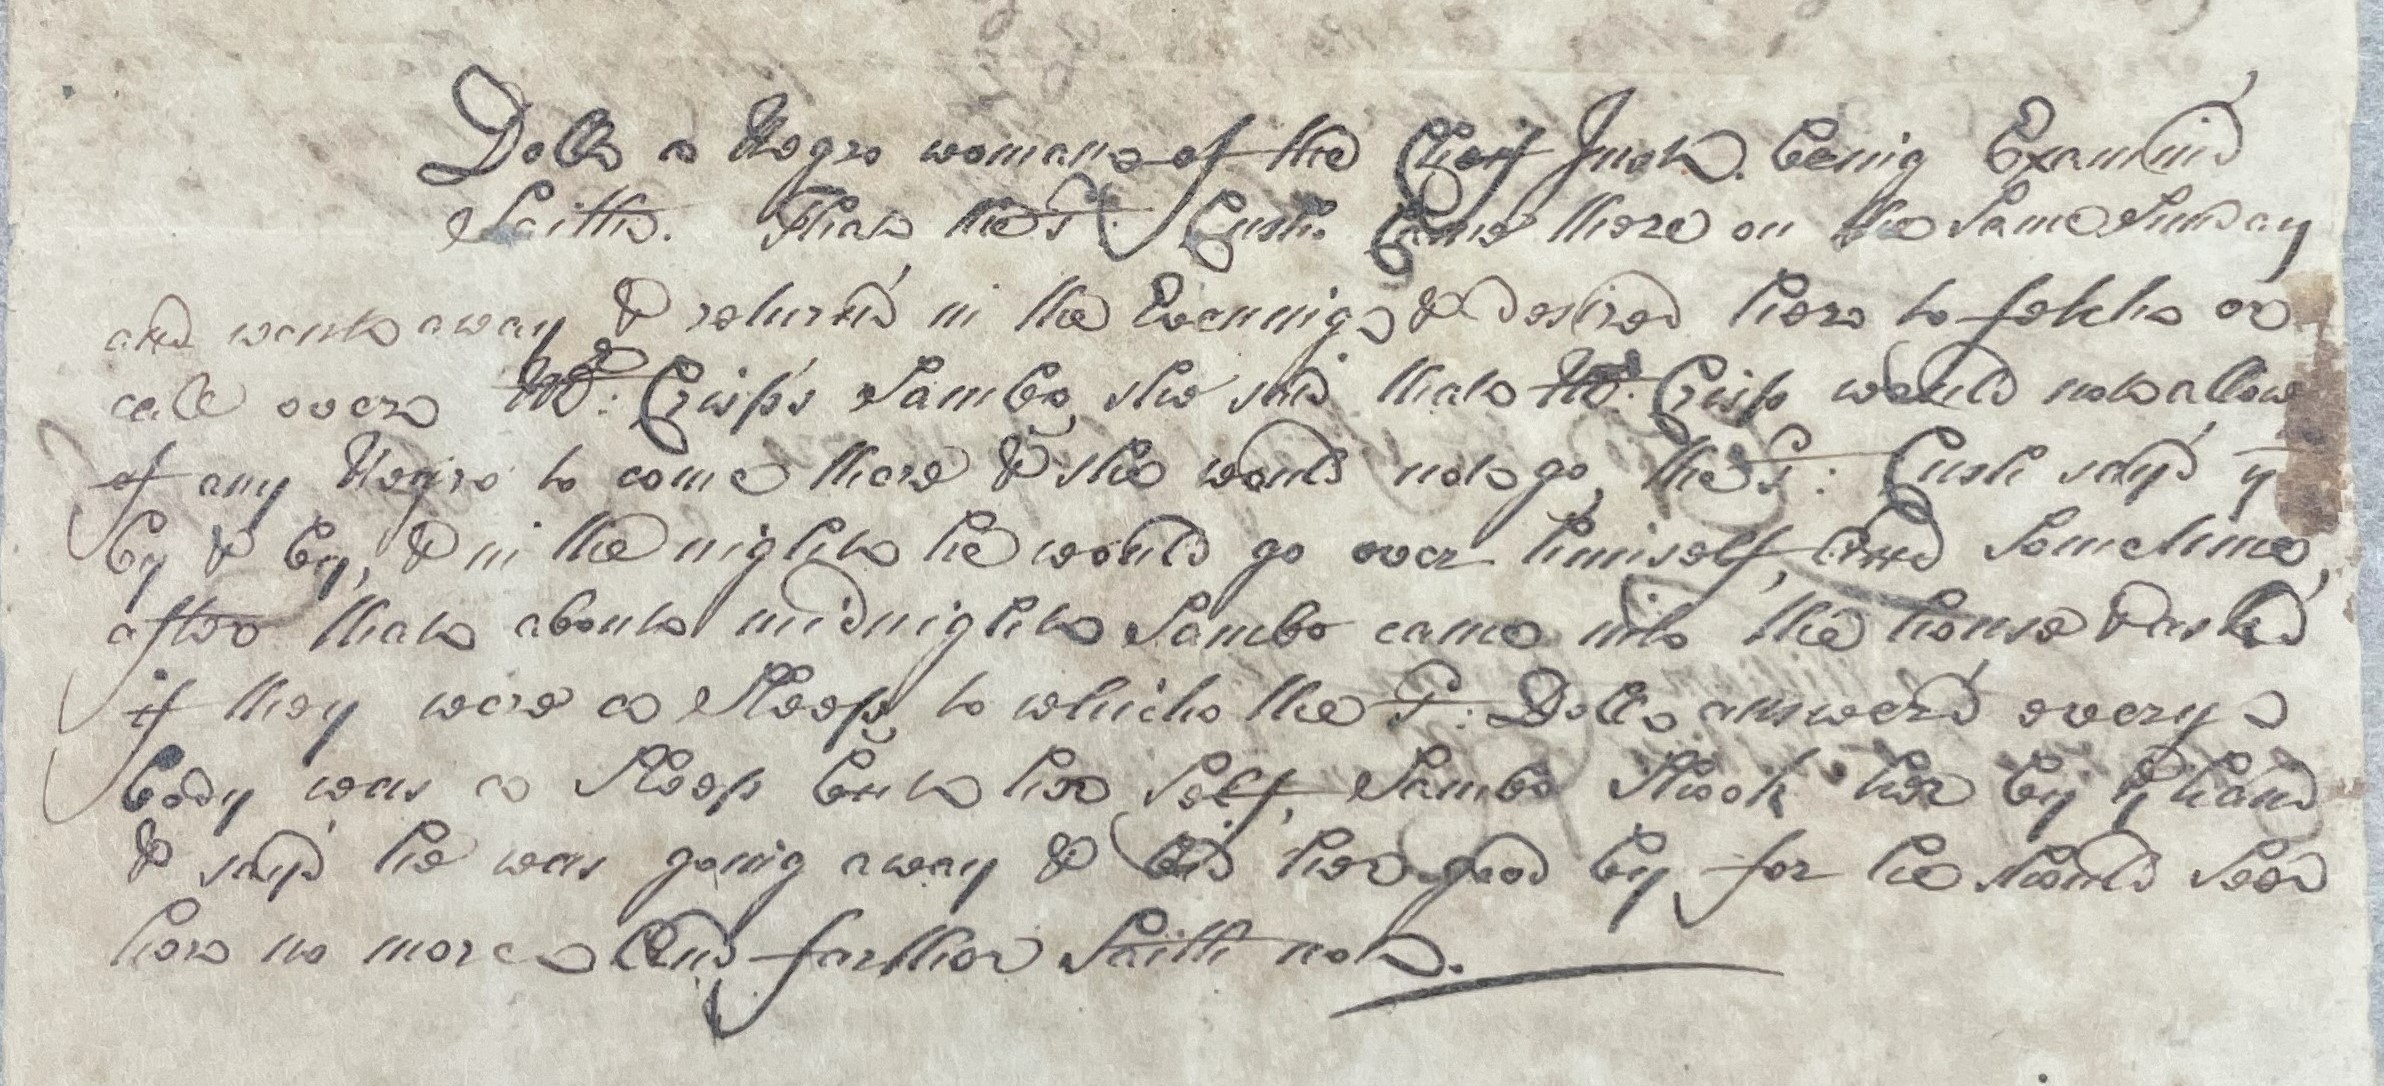 Doll a Negro woman of the Chief Just. being Examin'd
Saith. That the sd: Cush. Came there on the Same Sunday
and went away & return'd in the Evening & desired her to fetch or
call over Mr: Crisp's Sambo, she said that Mr: Crisp would not allow
of any Negro to come there & she would not go, the sd: Cush say'd yt
by & by, & in the night he would go over himself, And Sometime,
after that about midnight Sambo came into the house & ask'd
if they were a Sleep to which the sd: Doll answer'd every
body was a Sleep but her Self, Sambo Shook her by ye hand
& say'd he was going away & bid her good by for he should See
her no more And farther Saith not.